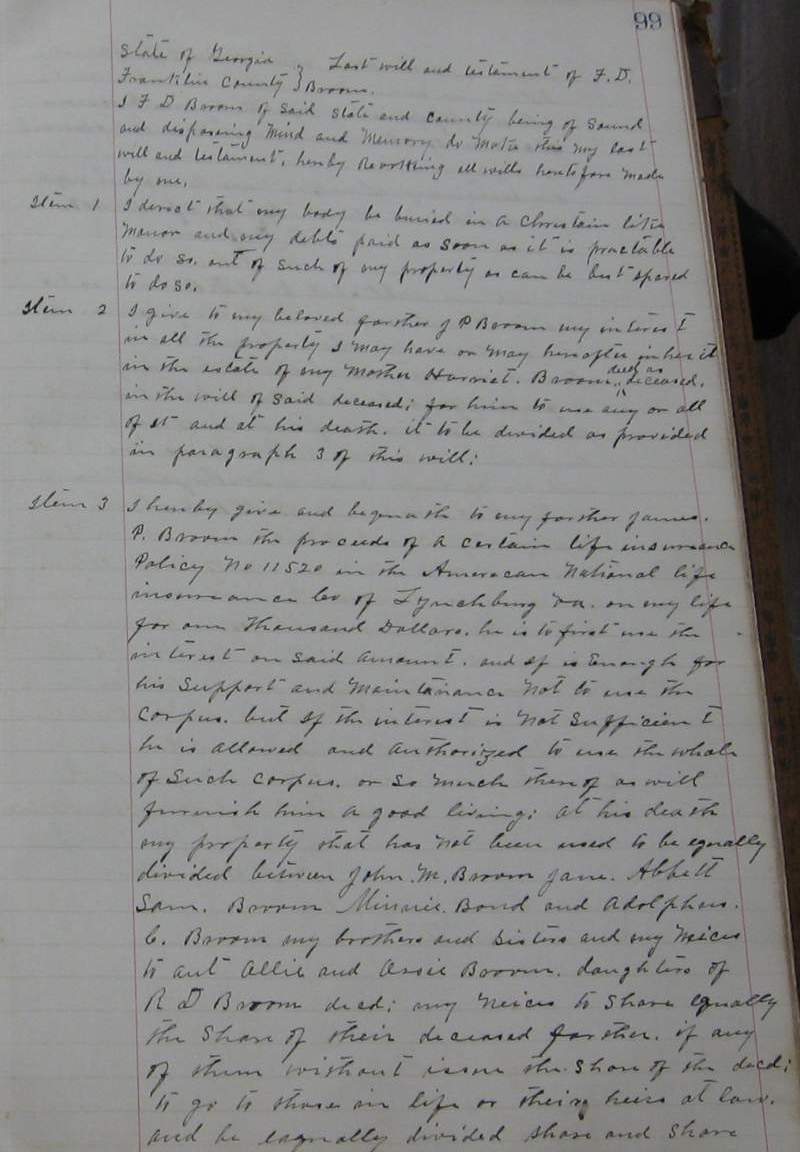 99
State of Georgia } Last will and testament of F. D.
Franklin County } Broom.
I F D Broom of Said State and County being of Sound
and disposing Mind and Memory do Make this my last
will and testament, hereby Revokking all wills heretofore Made
by me.
Item 1 I derect that my body be buried in a Christain like
Manor and my debts paid as soon as it is practable
to do so. out of such of my property as can be best spared
to do so.
Item 2 I give to my beloved farther J P Broom my interest
in all the property I may have or may hereafter inherit
in the estate of my Mother Harriet. Broom deceased.
in the will of said deceased; for him to use any or all
of it and at his death. it to be divided as provided
in paragraph 3 of this will;
Item 3 I hereby give and bequeath to my farther James.
P. Broom the proceeds of a certain life insurance
Policy No 11520 in the American National life
insurance Co of Lynchburg Va. on my life
for one Thousand Dollars. he is to first use the
interest on said amount. and if is Enough for
his Support and Maintainance Not to use the
Corpus. but if the interest is Not Sufficient
he is allowed and authorized to use the whole
of Such Corpus. or so much thereof as will
furnish him a good living; at his death
my property that has not been used to be equally
divided between John. M. Broom Jane. Abbett
Sam. Broom Minnie. Bond and Adolphus.
C. Broom my brothers and sisters and my Neices
to wit Allie and Ossie Broom. daughters of
R D Broom decd; my Neices to Share equally
the Share of their deceased farther. if any
of them without issue the Share of the decd;
to go to those in life or their heirs at law.
and be equally divided share and share